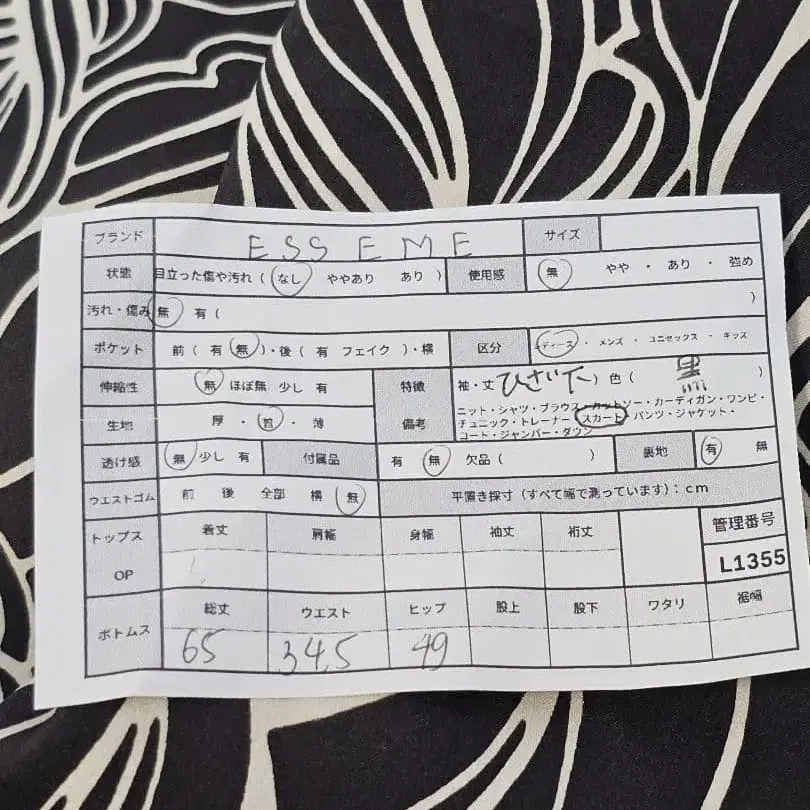 ブランド ESSEME サイズ
状態 目立った傷や汚れ ( なし ややあり あり ) 使用感 無 やや ・ あり ・ 強め
汚れ・傷み 無 有 ( )
ポケット 前 ( 有 無 )・後 ( 有 フェイク )・横 区分 ディース ・ メンズ ・ ユニセックス ・ キッズ
伸縮性 無 ほぼ無 少し 有 特徴 袖・丈 ひざ下 ) 色 ( 黒 )
生地 厚 ・ 普 ・ 薄 備考 ニット・シャツ・ブラウス・カットソー・カーディガン・ワンピ・
チュニック・トレーナー スカート・パンツ・ジャケット・
コート・ジャンバー・ダウン
透け感 無 少し 有 付属品 有 無 欠品 ( ) 裏地 有 無
ウエストゴム 前 後 全部 横 無 平置き採寸 (すべて幅で測っています) : cm
トップス 着丈 肩幅 身幅 袖丈 裄丈 管理番号
OP L1355
ボトムス 総丈 ウエスト ヒップ 股上 股下 ワタリ 裾幅
65 34.5 49